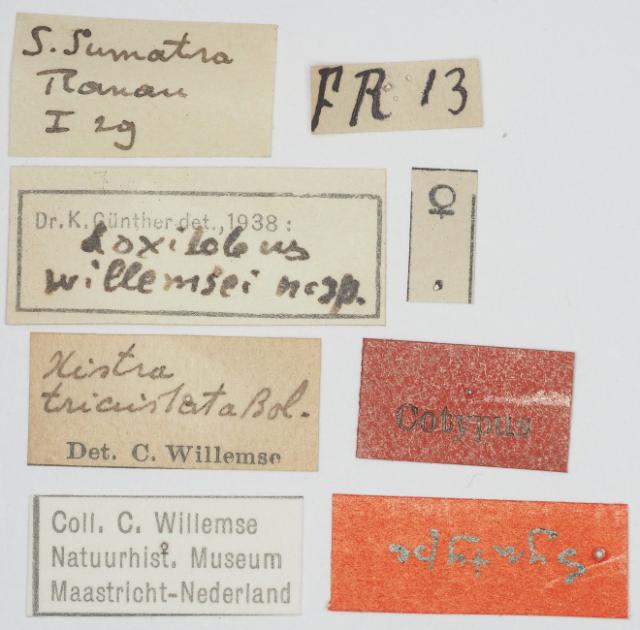 S. Sumatra
Ranau
I 29
FR 13
Dr. K. Günther det., 1938:
Loxilobus
willemsei n.sp.
♀
Xistra
tricristata Bol.
Det. C. Willemse
Cotypus
Coll. C. Willemse
Natuurhist. Museum
Maastricht-Nederland
Syntype